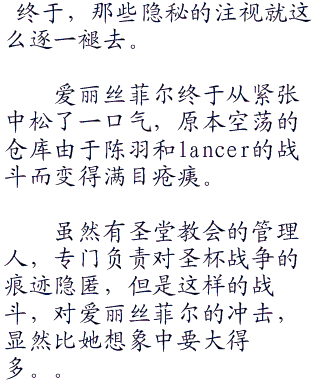 终于，那些隐秘的注视就这
么逐一褪去。
爱丽丝菲尔终于从紧张
中松了一口气，原本空荡的
仓库由于陈羽和lancer的战
斗而变得满目疮痍。
虽然有圣堂教会的管理
人，专门负责对圣杯战争的
痕迹隐匿，但是这样的战
斗，对爱丽丝菲尔的冲击，
显然比她想象中要大得
多。。